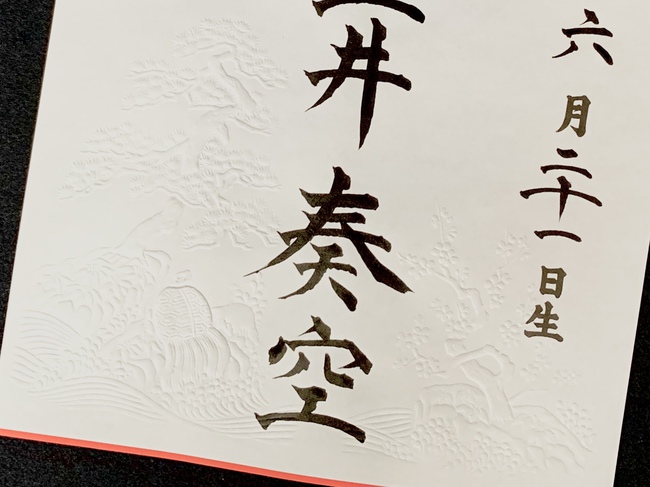 六月二十一日生
井奏空